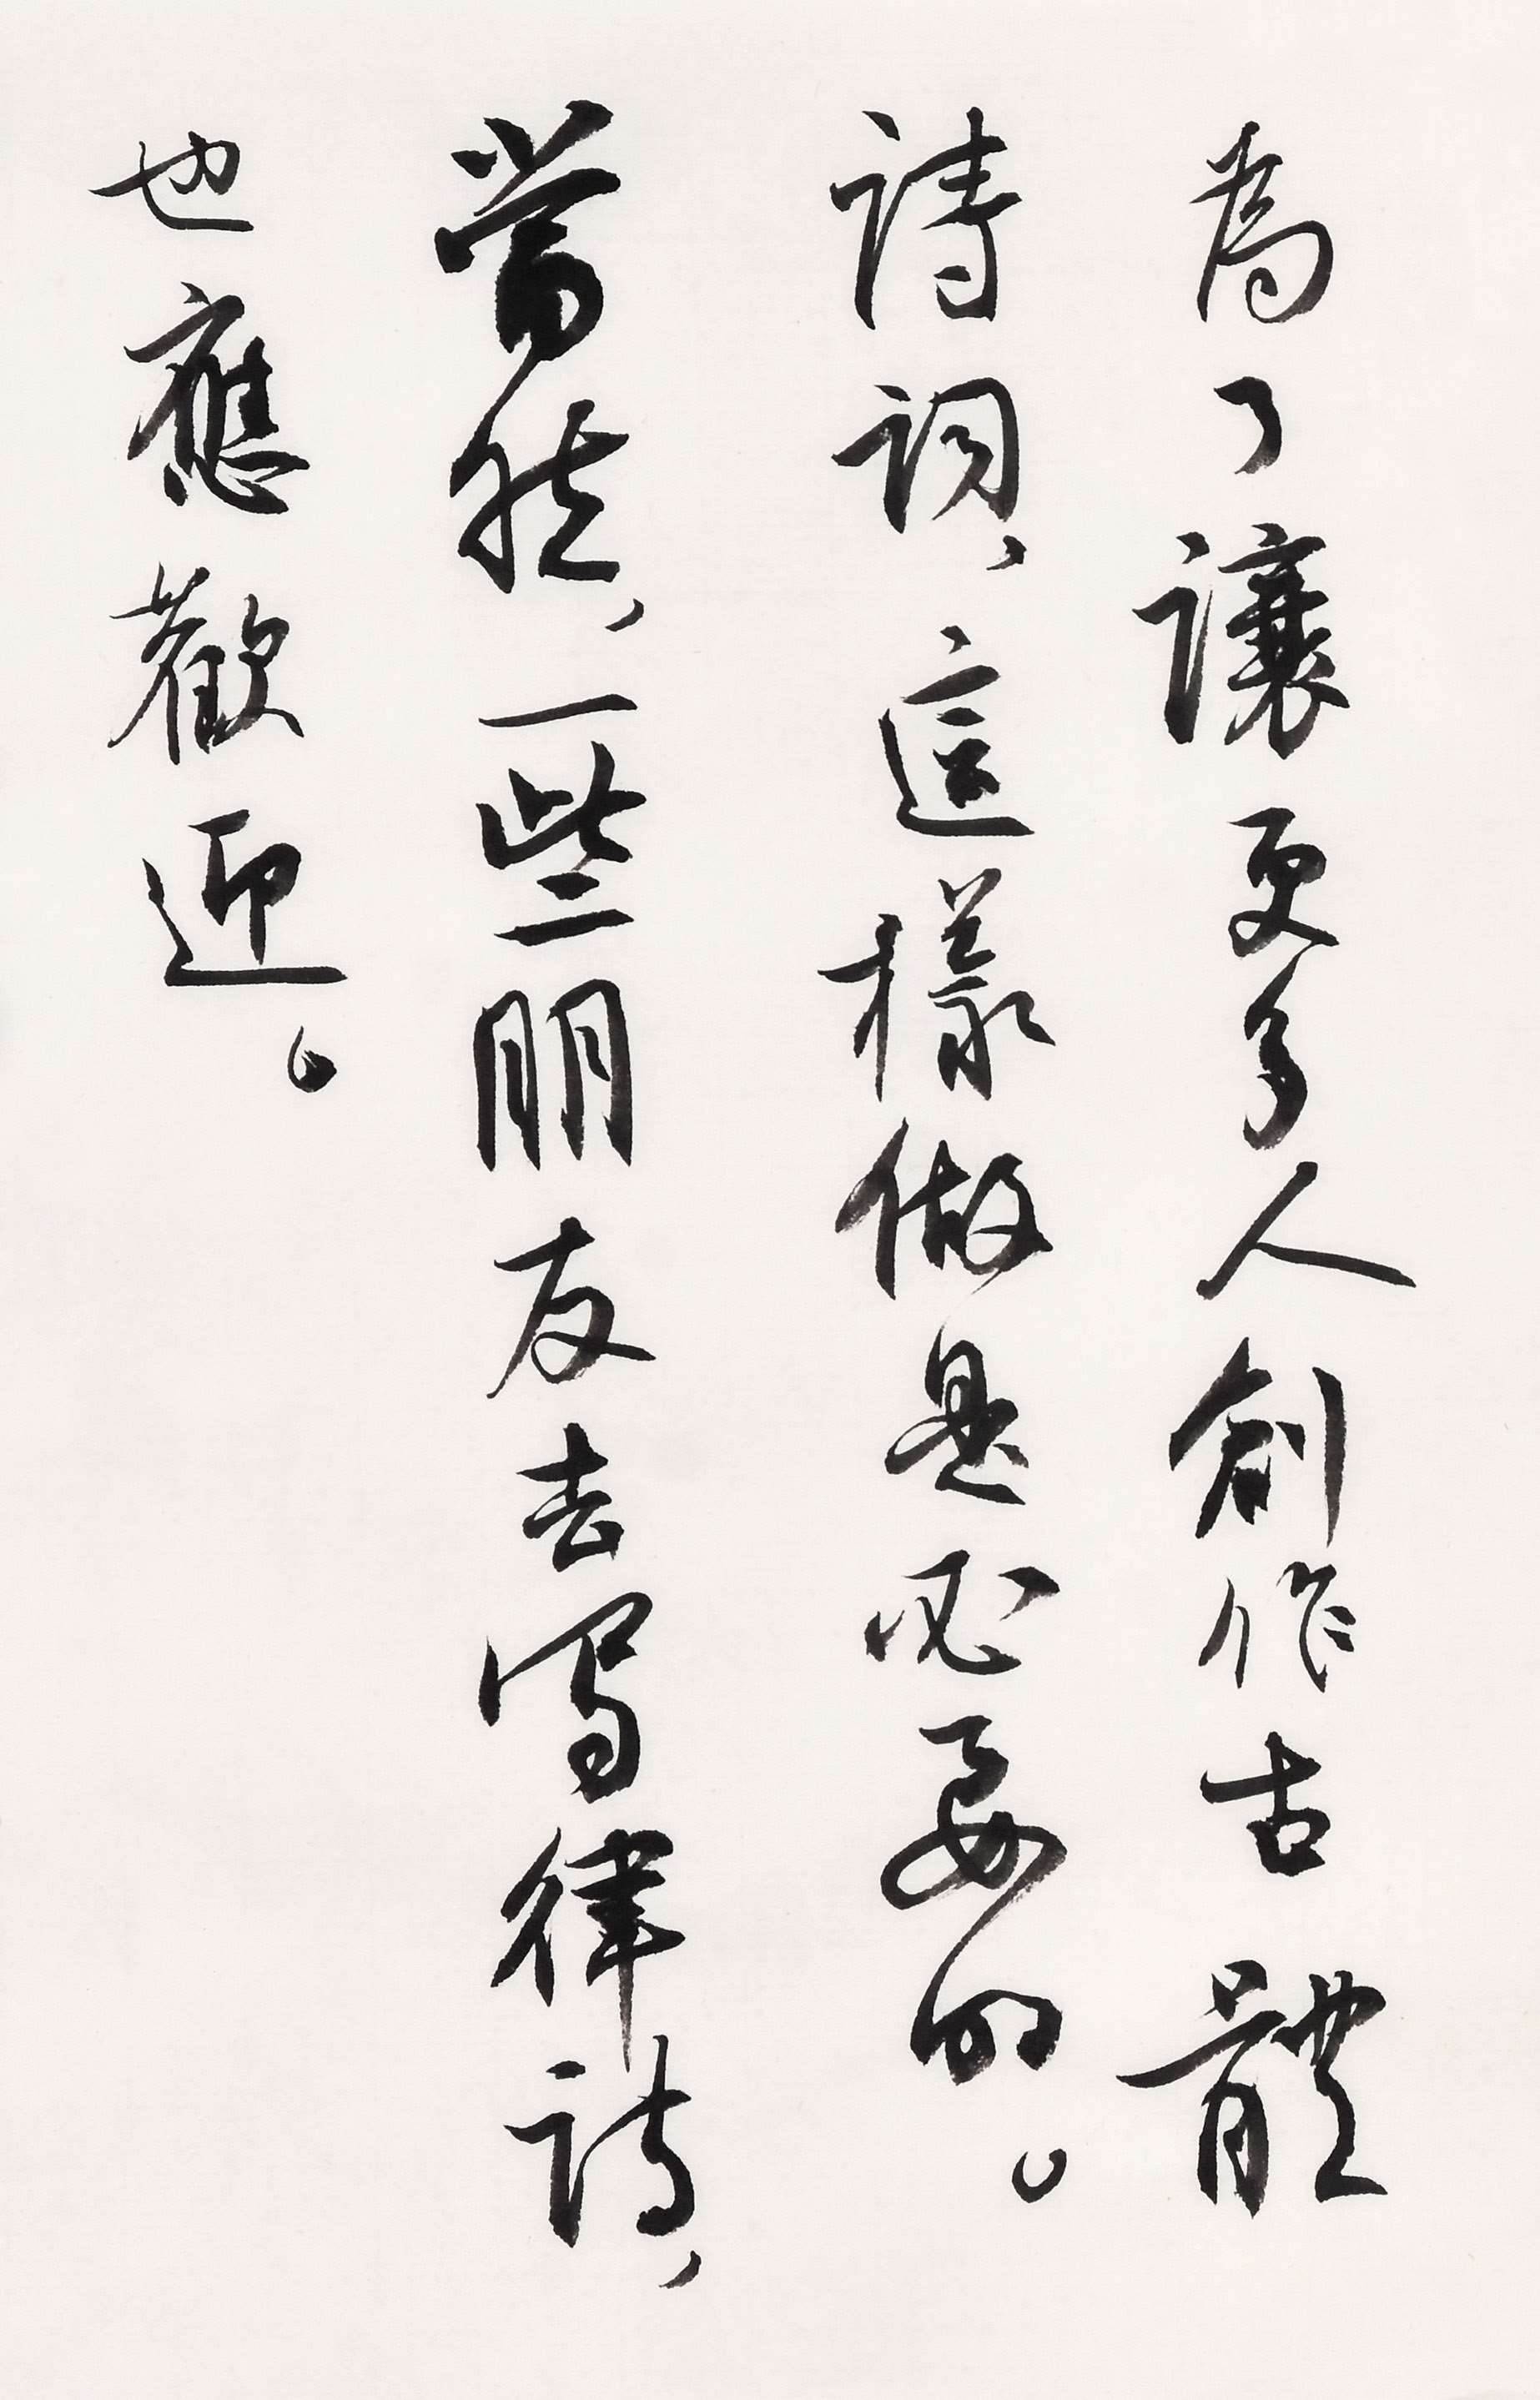 為了讓更多人創作古體
詩詞，這樣做是必要的。
當然，一些朋友去寫律詩，
也應歡迎。